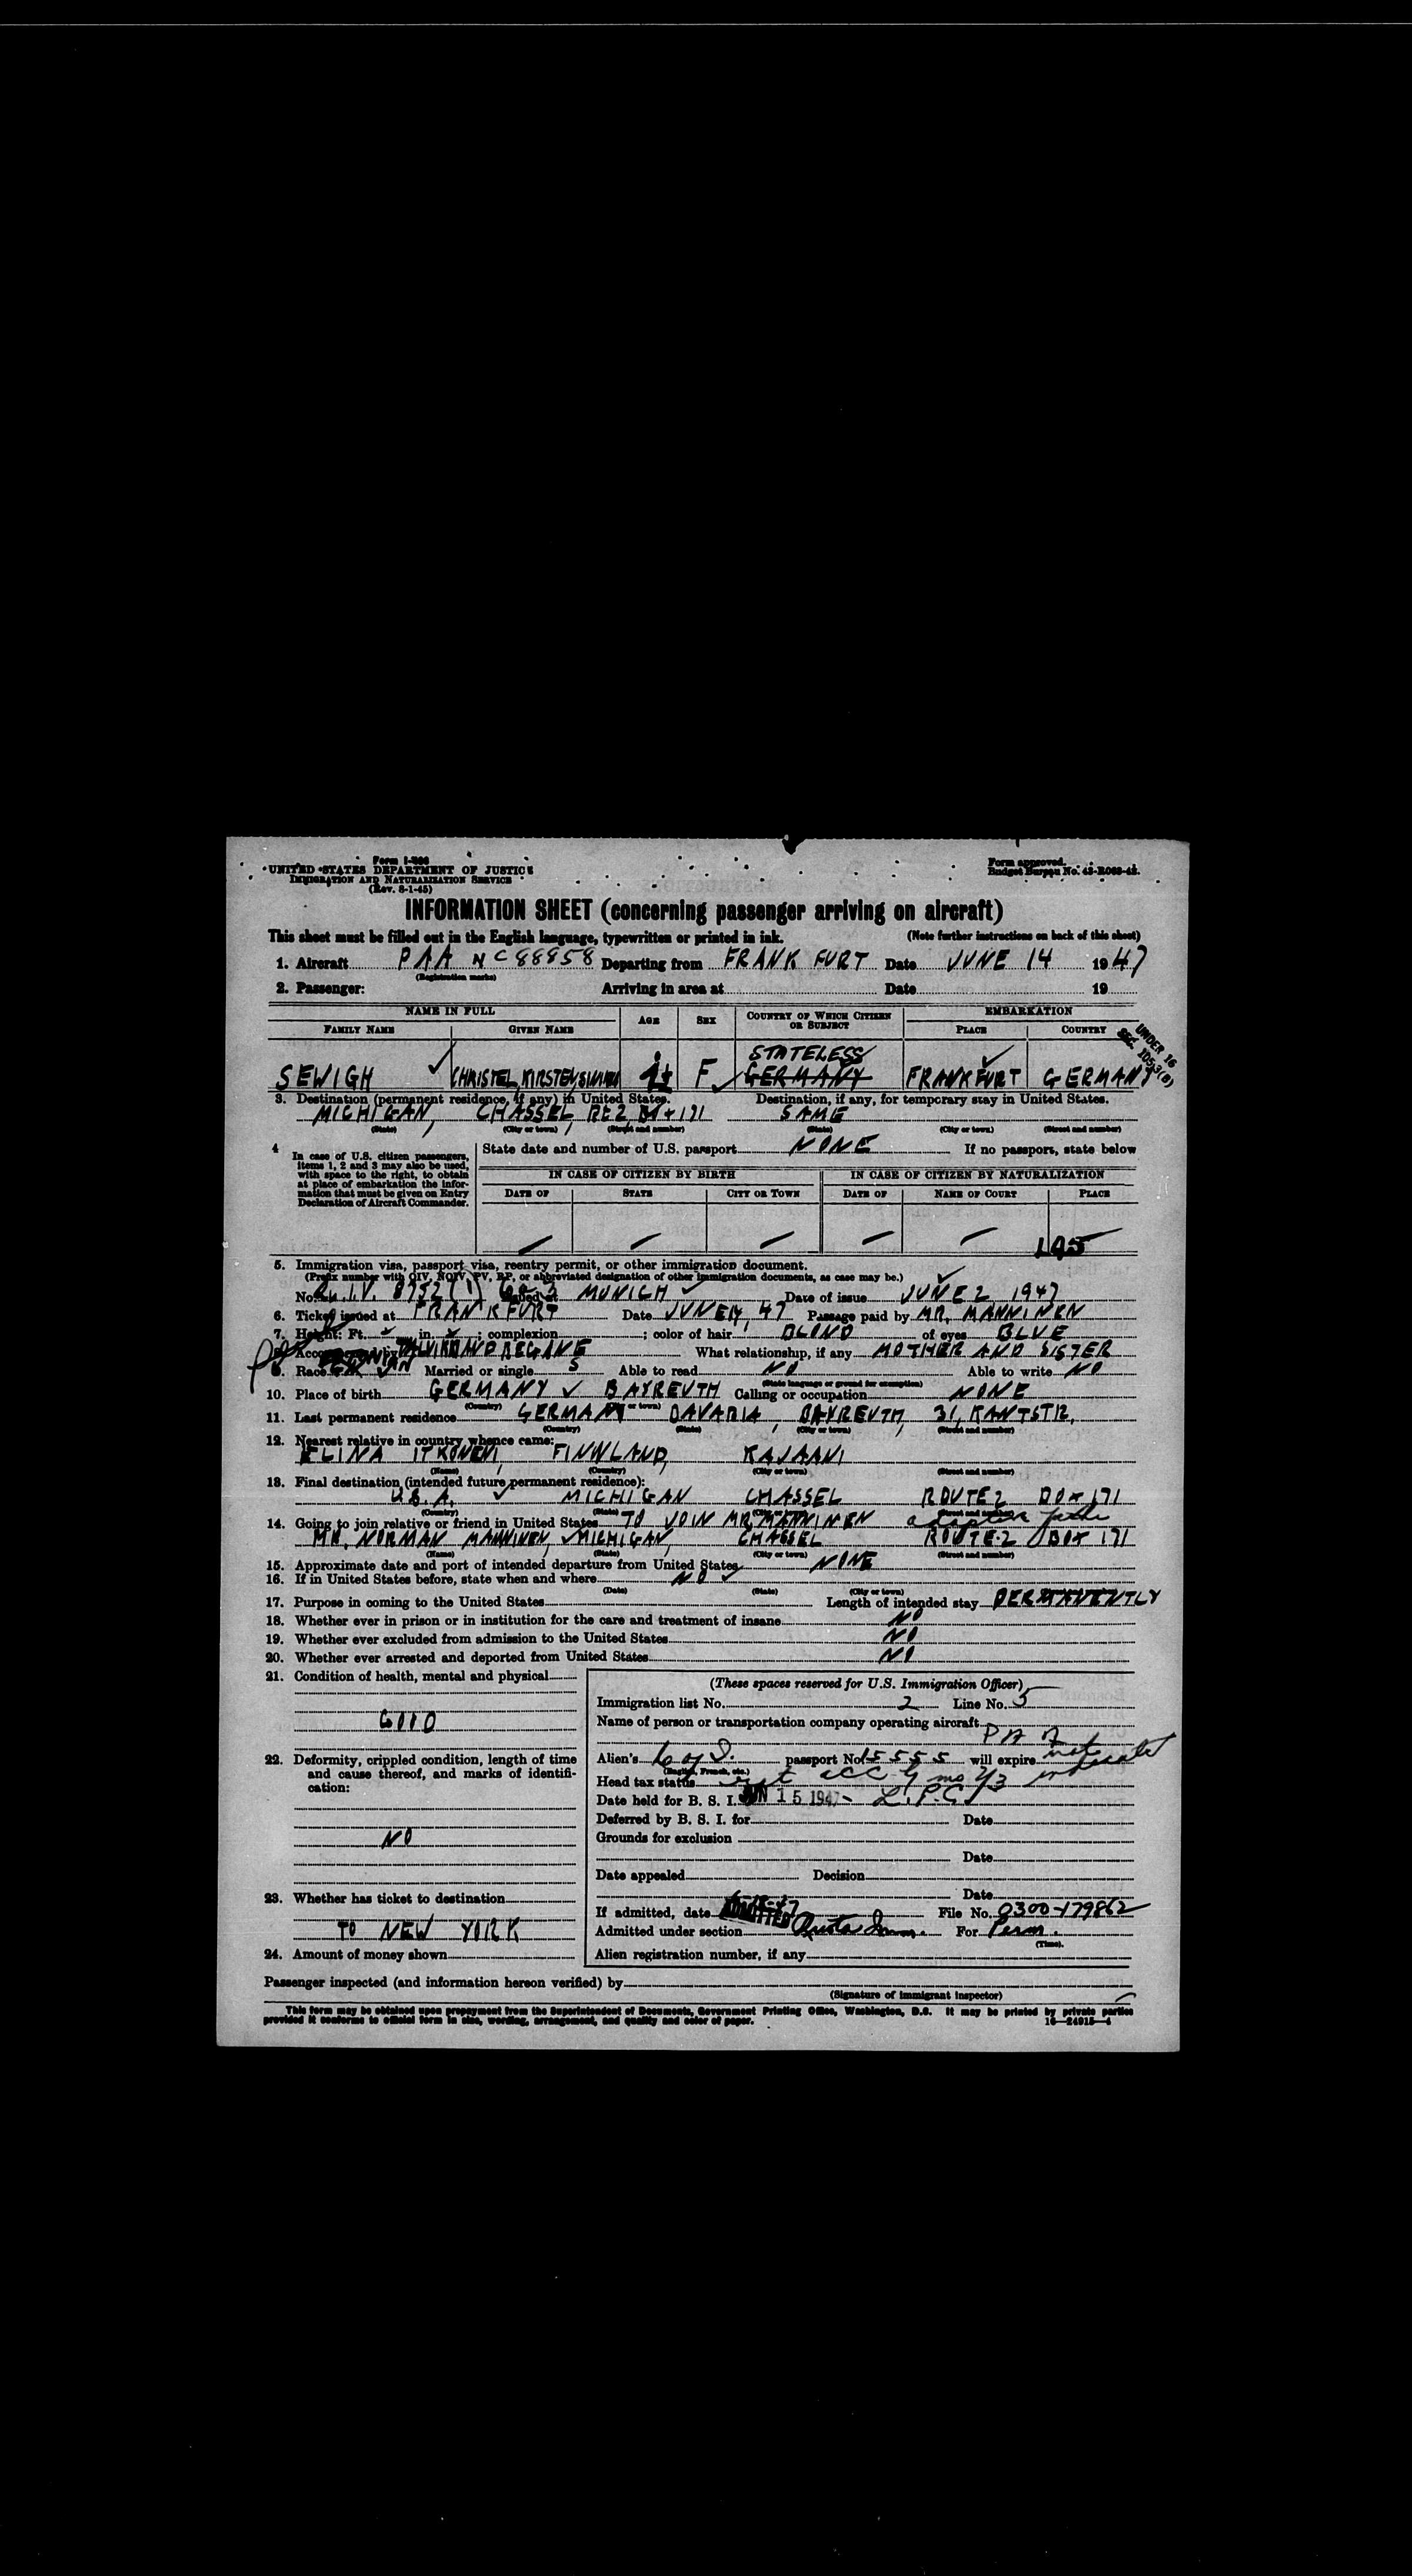 Form I-466
UNITED STATES DEPARTMENT OF JUSTICE
IMMIGRATION AND NATURALIZATION SERVICE
(Rev. 8-1-45)
Form approved.
Budget Bureau No. 43-R063-42.
INFORMATION SHEET (concerning passenger arriving on aircraft)
This sheet must be filled out in the English language, typewritten or printed in ink. (Note further instructions on back of this sheet)
1. Aircraft PAA NC88858 Departing from FRANKFURT Date JUNE 14 1947
(Registration marks)
2. Passenger: Arriving in area at Date 19
NAME IN FULL AGE SEX COUNTRY OF WHICH CITIZEN OR SUBJECT EMBARKATION
FAMILY NAME GIVEN NAME PLACE COUNTRY
UNDER 16
SEC. 105.3(8)
STATELESS
SEWIGH CHRISTEL, KIRSTEN, F GERMANY FRANKFURT GERMANY
3. Destination (permanent residence, if any) in United States. Destination, if any, for temporary stay in United States.
MICHIGAN, CHASSEL, RT 2 BOX 171 SAME
(State) (City or town) (Street and number) (State) (City or town) (Street and number)
4 In case of U.S. citizen passengers, items 1, 2 and 3 may also be used, with space to the right, to obtain at place of embarkation the information that must be given on Entry Declaration of Aircraft Commander.
State date and number of U.S. passport NONE If no passport, state below
IN CASE OF CITIZEN BY BIRTH IN CASE OF CITIZEN BY NATURALIZATION
DATE OF STATE CITY OR TOWN DATE OF NAME OF COURT PLACE
195
5. Immigration visa, passport visa, reentry permit, or other immigration document.
(Prefix number with QIV, NQIV, PV, RP, or abbreviated designation of other immigration documents, as case may be.)
No. Q.I.V. 8752 (1) Issued at MUNICH Date of issue JUNE 2 1947
6. Ticket issued at FRANKFURT Date JUNE 14, 47 Passage paid by MR. MANNINEN
7. Height: Ft. in. ; complexion ; color of hair BLOND of eyes BLUE
8. Accompanied by AND REGANE What relationship, if any MOTHER AND SISTER
9. Race Married or single S Able to read NO Able to write NO
(State language or ground for exemption)
10. Place of birth GERMANY BAYREUTH Calling or occupation NONE
(Country) (City or town)
11. Last permanent residence GERMANY BAVARIA, BAYREUTH, 31, KANTSTR,
(Country) (State) (City or town) (Street and number)
12. Nearest relative in country whence came:
ELINA ITKONEN, FINNLAND, KAJAANI
(Name) (Country) (City or town) (Street and number)
13. Final destination (intended future permanent residence):
U.S.A. MICHIGAN CHASSEL ROUTE 2 BOX 171
(Country) (State) (City or town) (Street and number)
14. Going to join relative or friend in United States TO JOIN MR. MANNINEN
MR. NORMAN MANNINEN, MICHIGAN, CHASSEL ROUTE-2 BOX 171
(Name) (State) (City or town) (Street and number)
15. Approximate date and port of intended departure from United States NONE
16. If in United States before, state when and where NO
(Date) (State) (City or town)
17. Purpose in coming to the United States Length of intended stay PERMANENTLY
18. Whether ever in prison or in institution for the care and treatment of insane NO
19. Whether ever excluded from admission to the United States NO
20. Whether ever arrested and deported from United States NO
21. Condition of health, mental and physical
GOOD
22. Deformity, crippled condition, length of time and cause thereof, and marks of identification:
NO
23. Whether has ticket to destination
TO NEW YORK
24. Amount of money shown
(These spaces reserved for U.S. Immigration Officer)
Immigration list No. 2 Line No. 5
Name of person or transportation company operating aircraft
PAA
Alien's C of I. passport No. 15555 will expire not
(English, French, etc.)
Head tax status
Date held for B. S. I. JUN 15 1947 - L.P.C.
Deferred by B. S. I. for Date
Grounds for exclusion
Date
Date appealed Decision
Date
If admitted, date ADMITTED File No. 0300-179862
Admitted under section Quota Imm. For Perm.
(Time).
Alien registration number, if any
Passenger inspected (and information hereon verified) by
(Signature of immigrant inspector)
This form may be obtained upon prepayment from the Superintendent of Documents, Government Printing Office, Washington, D.C. It may be printed by private parties
provided it conforms to official form in size, wording, arrangement, and quality and color of paper. 16—24915-4